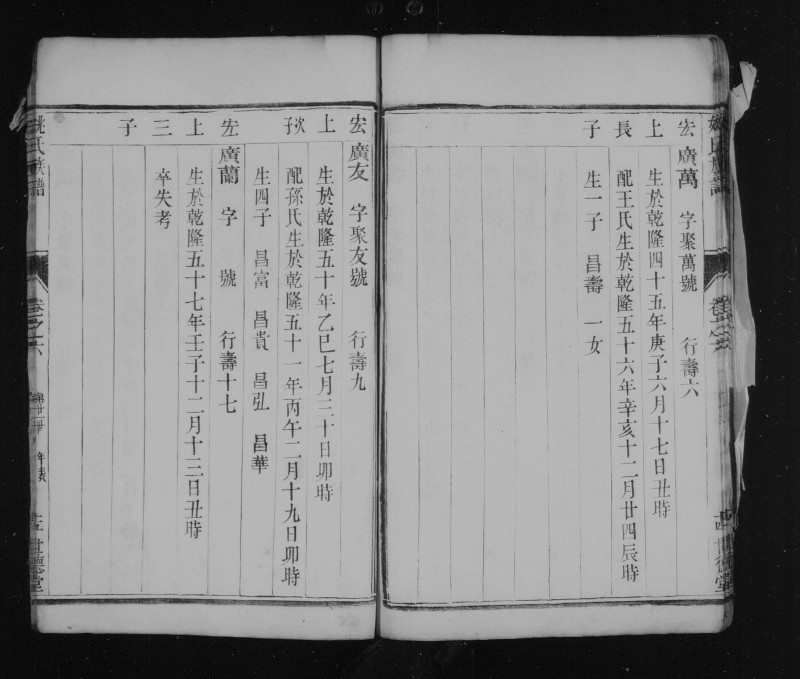 宏 廣萬 字聚萬號 行壽六
上 生於乾隆四十五年庚子六月十七日丑時
長 配王氏生於乾隆五十六年辛亥十二月廿四辰時
子 生一子 昌壽 一女
宏 廣友 字聚友號 行壽九
上 生於乾隆五十年乙巳七月三十日卯時
次子 配孫氏生於乾隆五十一年丙午二月十九日卯時
生四子 昌富 昌貴 昌弘 昌華
宏 廣蘭 字 號 行壽十七
上 生於乾隆五十七年壬子十二月十三日丑時
三 卒失考
子
姚氏族譜 卷之六 年表 世德堂